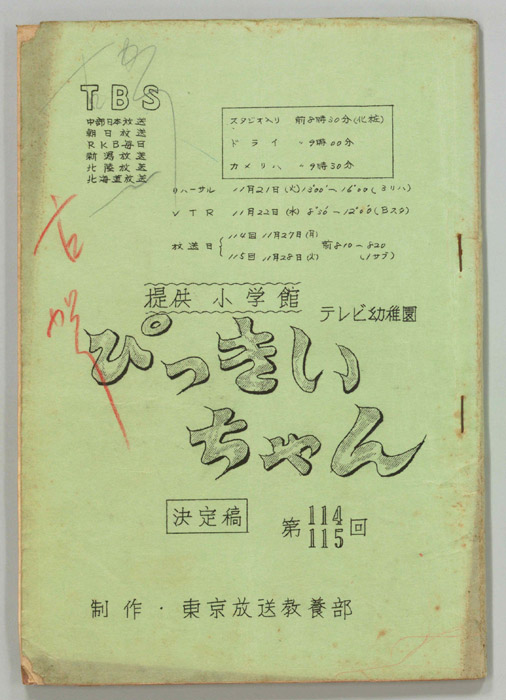 TBS
中部日本放送
朝日放送
RKB毎日
新潟放送
北陸放送
北海道放送
スタジオ入り 前8時30分(化粧)
ドライ 〃 9時00分
カメリハ 〃 9時30分
リハーサル 11月21日(火) 13°00'〜16°00'(3リハ)
VTR 11月22日(水) 8°30'〜12°00'(Bスタ)
放送日 114回 11月27日(月) 前810〜820
115回 11月28日(火) (1サブ)
提供 小学館
テレビ幼稚園
ぴっきい
ちゃん
決定稿
第114 115回
制作・東京放送教養部